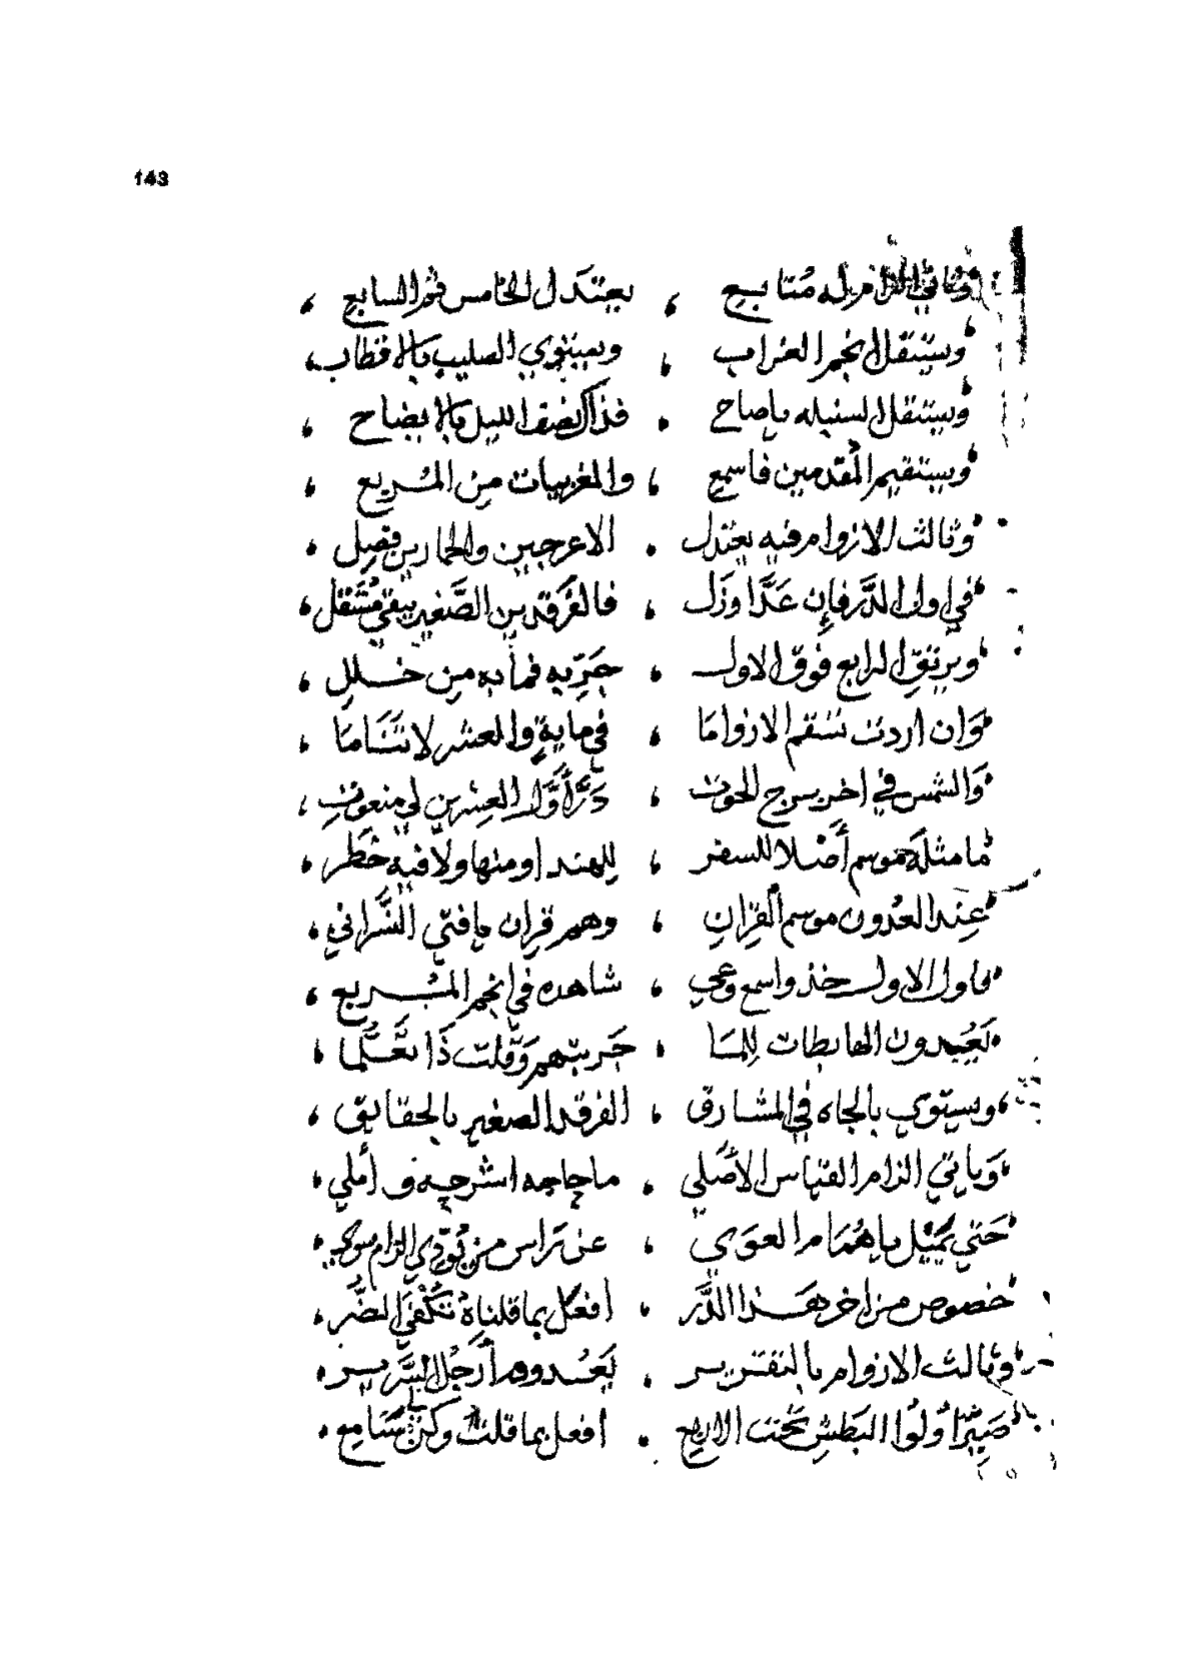 143
وثاني الازام له متابع ، يعتدل الخامس ثم السابع ،
ويستقل نجم العراب ، ويستوي الصليب بالاقطاب ،
ويستقل السنبله ياصاح ، فذاك نصف الليل بالايضاح ،
ويستقيم المقدمين فاسمع ، والمغربيات من المربع ،
وثالث الازوام فيه يعتدل ، الاعرجين والحمارين فصل ،
في اول الدر فان عدا وزل ، فالفرقدين الصغير يبقى مستقل ،
ويرتقي الرابع فوق الاول ، جربه فما به من خلل ،
وان اردت تنقم الازواما ، في ماية والعشر لا تناما ،
والشمس في اخر برج الحوت ، در اول العشرين لي منعوت ،
ما مثله موسم اصلا للسفر ، للهند او منها ولا فيه خطر ،
عند العدون موسم القران ، وهم قران يا فتى الشراني ،
فاول الاول خذ واسمع وعي ، شاهده في انجم المربع ،
تعيدون الهابطات للما ، جربتهم وقلت ذا تعلما ،
ويستوي بالجاه في المشارق ، الفرقد الصغير بالحقايق ،
وياتي الزام القياس الاصلي ، ما جا به اشرحه في املي ،
حتى يميل ياهمام العوي ، عن تراس من يودي الزام سوى ،
خصوص من اخر هذا الدر ، افعل بما قلناه تكفى الضر ،
وثالث الازوام بالتقرير ، يعدوه ارجل السرير ،
صيرا ولوا البطش تحت الاربع ، افعل بما قلت وكن سامع ،